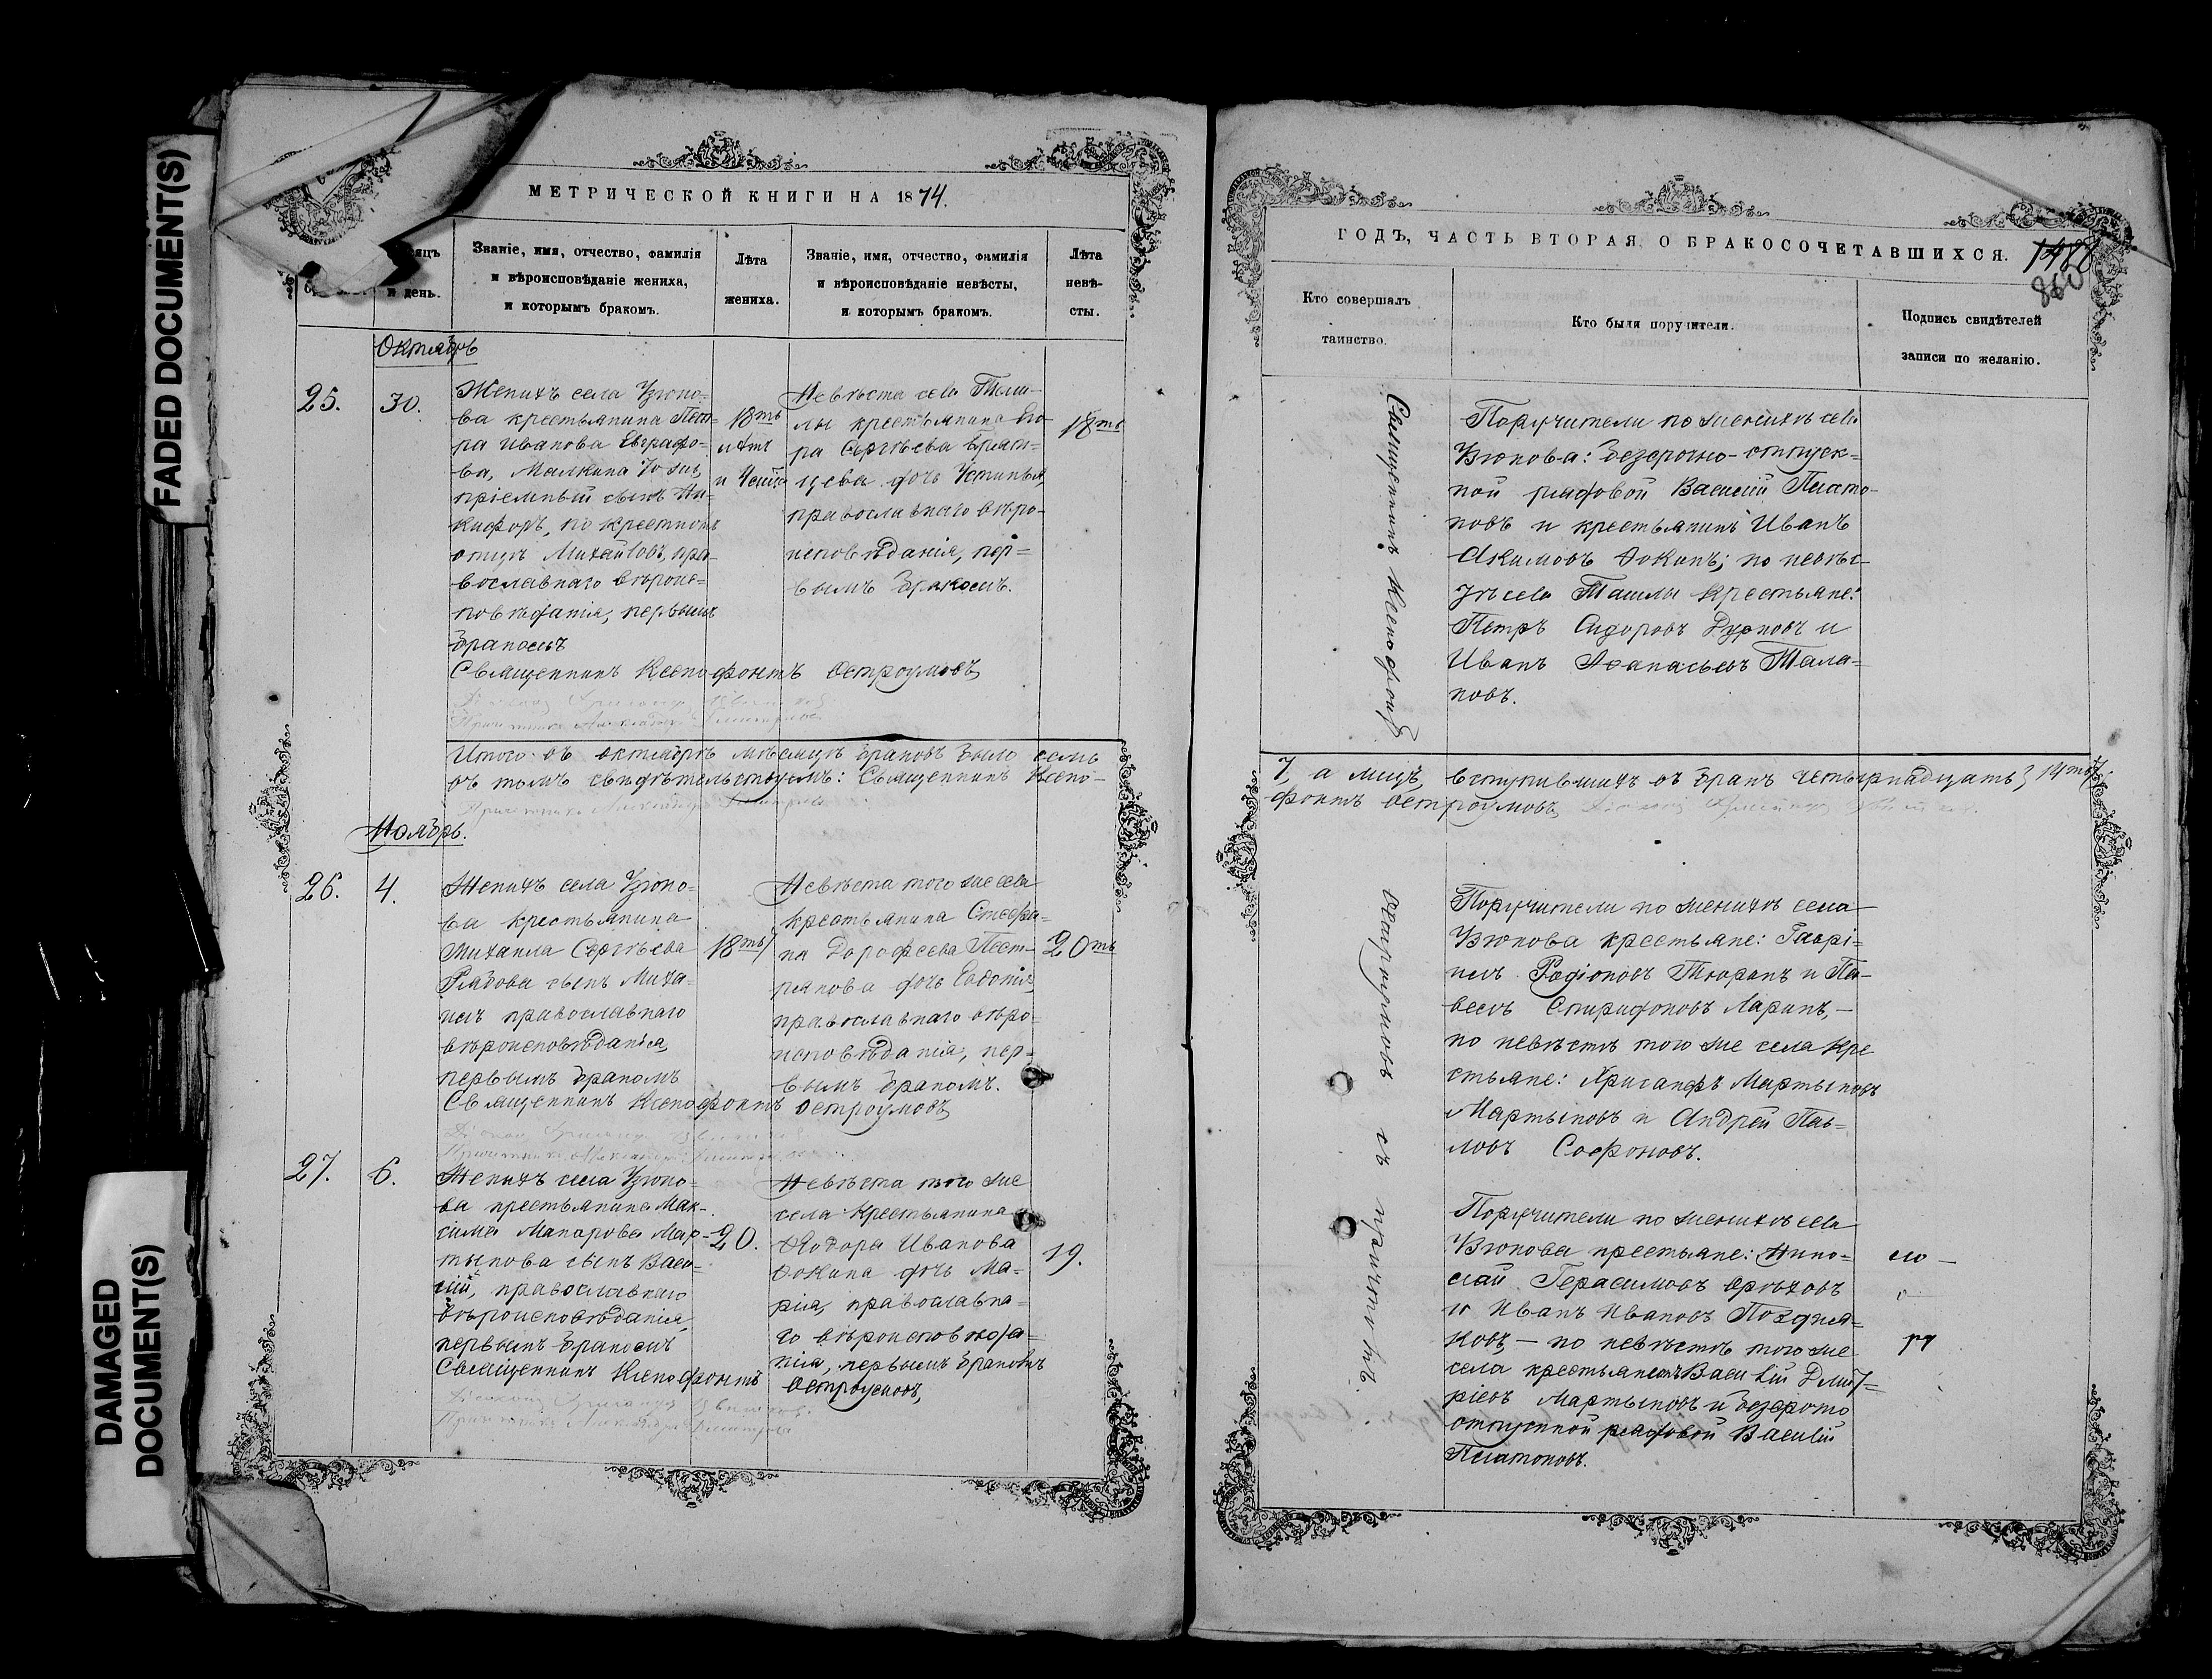 FADED DOCUMENT(S)
DAMAGED
DOCUMENT(S)
МЕТРИЧЕСКОЙ КНИГИ НА 1874.
и день.
Званіе, имя, отчество, фамилія
и вѣроисповѣданіе жениха,
и которымъ бракомъ.
Лѣта
жениха.
Званіе, имя, отчество, фамилія
и вѣроисповѣданіе невѣсты,
и которымъ бракомъ.
Лѣта
невѣ-
сты.
Октябрь
25.
30.
Женихъ села Узюко-
ва крестьянина Пет-
ра Иванова Евграфо-
ва, Малкина тожъ,
пріемный сынъ Ни-
кифоръ, по крестному
отцу Михайловъ, пра-
вославнаго вѣроис-
повѣданія, первымъ
бракомъ
18ть
лѣтъ
Невѣста села Таш-
лы крестьянина
ра Сергѣева
цева дочь Устинья,
православнаго вѣро-
исповѣданія, пер-
вымъ бракомъ.
18ть
Священникъ Ксенофонтъ Остроумовъ
Итого въ октябрѣ мѣсяцѣ браковъ было семь
въ томъ свидѣтельствуемъ: Священникъ Ксено-
Ноябрь.
26.
4.
Женихъ села Узюко-
ва крестьянина
Михаила Сергѣева
Рябова сынъ Миха-
илъ православнаго
вѣроисповѣданія,
первымъ бракомъ
18ть
Невѣста того же села
крестьянина Стефа-
на Дорофеева Пест-
рякова дочь Евдокія,
православнаго вѣро-
исповѣданія, пер-
вымъ бракомъ.
20ть
Священникъ Ксенофонтъ Остроумовъ
27.
6.
Женихъ села Узюко-
ва крестьянина Мак-
сима Макарова Мар-
тынова сынъ Васи-
лій, православнаго
вѣроисповѣданія,
первымъ бракомъ
20.
Невѣста того же
села крестьянина
Ѳеодора Иванова
Ѳокина дочь Ма-
рія, православна-
го вѣроисповѣда-
нія, первымъ бракомъ
19.
Священникъ Ксенофонтъ
Остроумовъ,
ГОДЪ, ЧАСТЬ ВТОРАЯ, О БРАКОСОЧЕТАВШИХСЯ.
1488
860
Кто совершалъ
таинство.
Кто были поручители.
Подпись свидѣтелей
записи по желанію.
Священникъ Ксенофонтъ
Поручители по женихѣ села
Узюкова: безсрочно-отпуск-
ной рядовой Василій Плато-
новъ и крестьянинъ Иванъ
Акимовъ Ѳокинъ; по невѣс-
тѣ села Ташлы крестьяне:
Петръ Сидоровъ Дурновъ и
Иванъ Аѳанасьевъ Тала-
новъ.
7, а лицъ, вступившихъ въ бракъ четырнадцать, 14ть
фонтъ Остроумовъ
Остроумовъ съ причтомъ.
Поручители по женихѣ села
Узюкова крестьяне: Гаврі-
илъ Родіоновъ Тюринъ и Па-
велъ Спиридоновъ Ларинъ,—
по невѣстѣ того же села кре
стьяне: Хрисанфъ Мартыновъ
Мартыновъ и Андрей Пав-
ловъ Софроновъ.
Поручители по женихѣ села
Узюкова крестьяне: Нико-
лай Герасимовъ Орѣховъ
и Иванъ Ивановъ Поздня-
ковъ,— по невѣстѣ того же
села крестьянинъ Василій Дмит-
ріевъ Мартыновъ и безсрочно
отпускной рядовой Василій
Платоновъ.